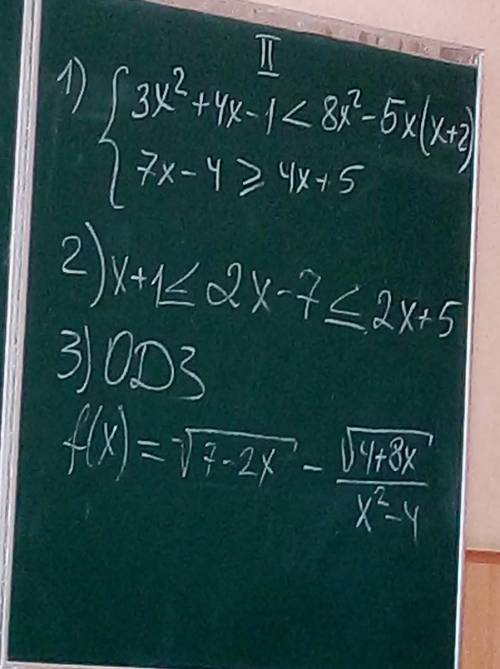 II
1) { 3x² + 4x - 1 < 8x² - 5x(x+2)
7x - 4 ⩾ 4x + 5
2) x + 1 ≤ 2x - 7 ≤ 2x + 5
3) ОДЗ
f(x) = √(7 - 2x) - √(4+8x) / (x² - 4)